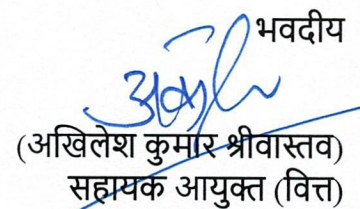 भवदीय
(अखिलेश कुमार श्रीवास्तव)
सहायक आयुक्त (वित्त)